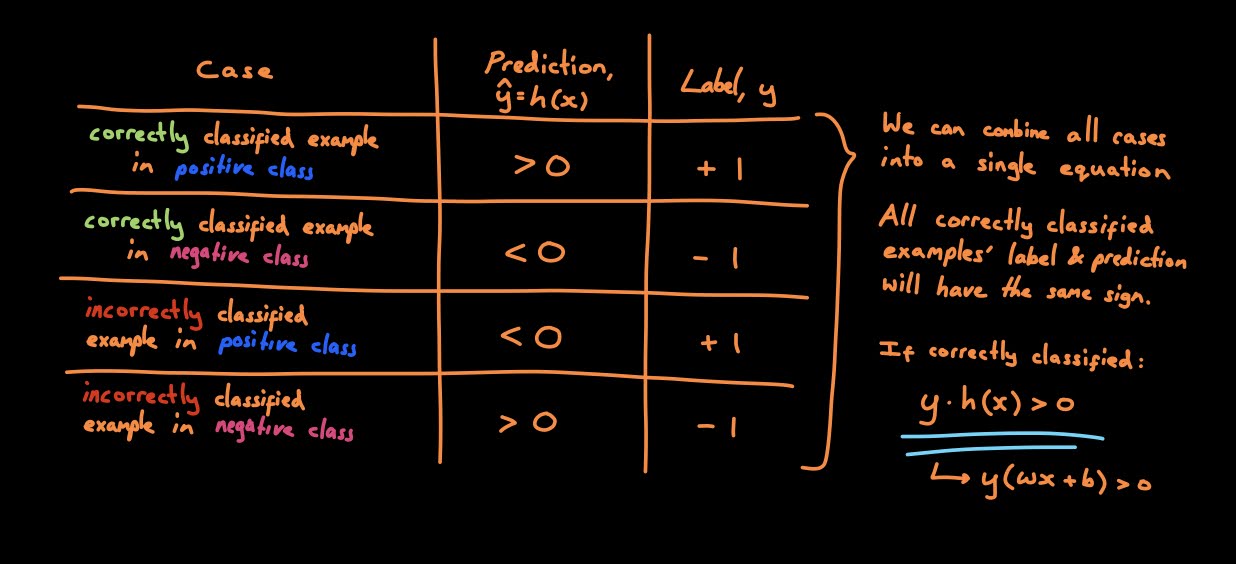 Case
Prediction,
ŷ = h(x)
Label, y
correctly classified example
in positive class
> 0
+ 1
correctly classified example
in negative class
< 0
- 1
incorrectly classified
example in positive class
< 0
+ 1
incorrectly classified
example in negative class
> 0
- 1
We can combine all cases
into a single equation
All correctly classified
examples' label & prediction
will have the same sign.
If correctly classified:
y · h(x) > 0
↳ y(wx + b) > 0